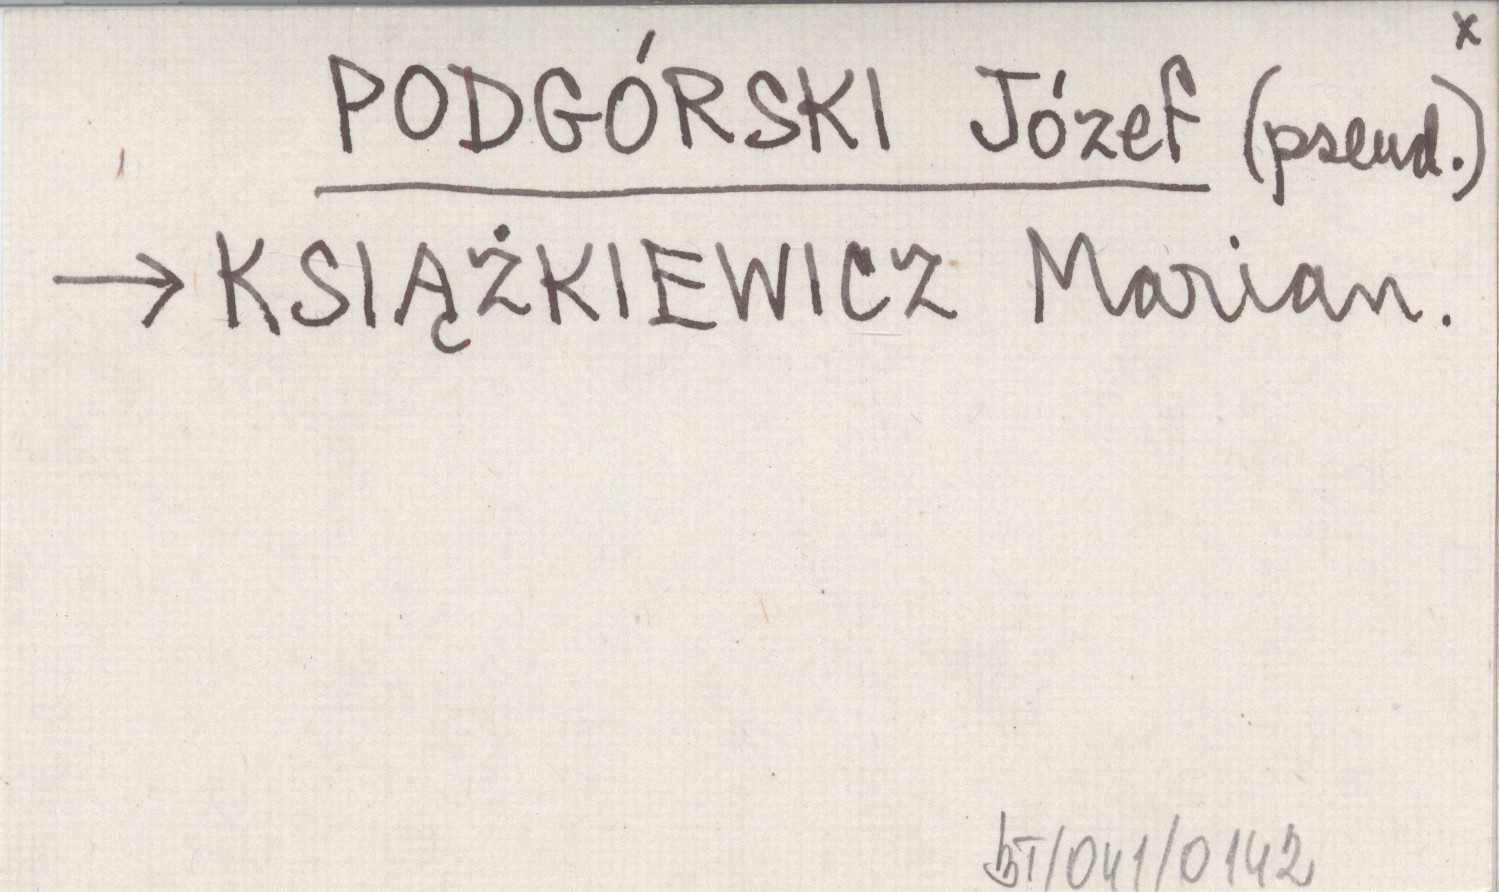 x
PODGÓRSKI Józef (pseud.)
→ KSIĄŻKIEWICZ Marian.
/041/0142